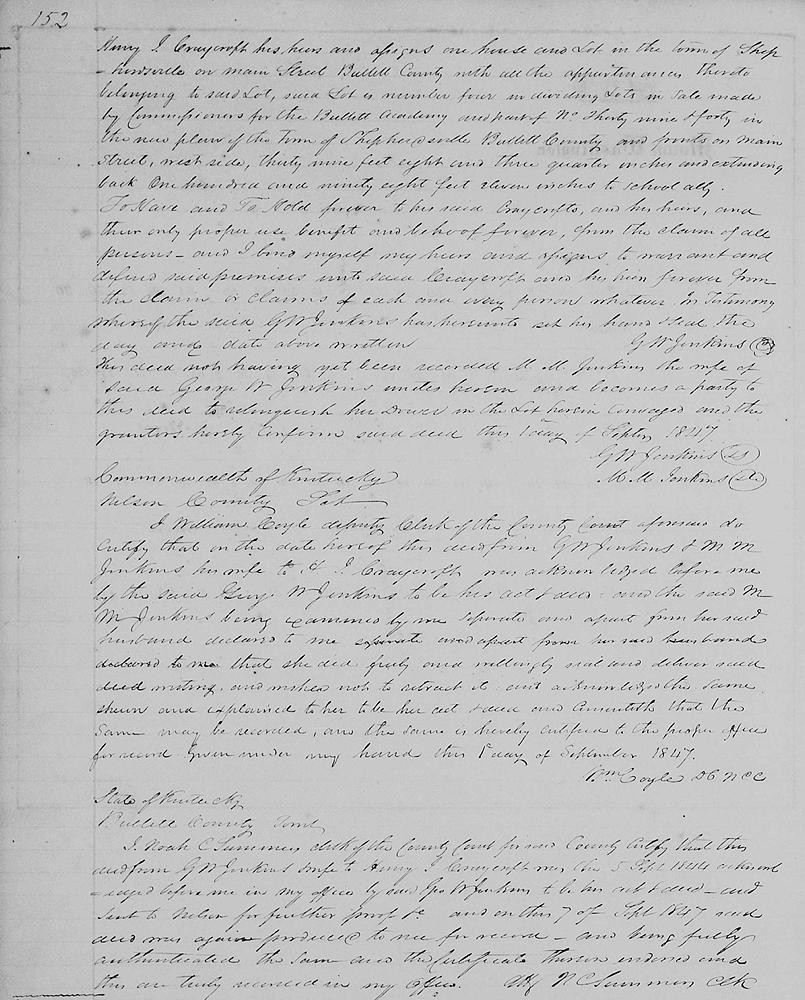 152
Henry I Craycroft his heirs and assigns one house and Lot in the town of Shep
-herdsville on main Street Bullett County with all the appurtinances thereto
belonging to said Lot, said Lot is number four in dividing Lots in Sale made
by Commissioners for the Bullett Academy and part of No Thirty nine & forty in
the new plan of the Town of Shepherdsville Bullett County and fronts on main
Street, west side, thirty nine feet eight and three quarter inches and extending
back One hundred and ninety eight feet eleven inches to school ally.
To Have and To Hold forever to his said Craycrofts, and his heirs, and
their only proper use benefit and behoof forever, from the claim of all
persons - and I bind myself my heirs and assigns to warrant and
defend said premises unto said Craycroft and his heirs forever from
the claim or claims of each and every person whatever. In Testimony
whereof the said G W Jenkins has hereunto set his hand & seal the
day and date above written G W Jenkins
This deed not having yet been recorded M. M. Jenkins the wife of
said George W Jenkins unites herein and becomes a party to
this deed to relinquish her Dower in the Lot herein Conveyed and the
grantors hereby Confirm said deed this 1 day of Septr 1847
G W Jenkins (LS)
M. M Jenkins
Commonwealth of Kentucky
Nelson County Sct
I William Coyle deputy Clerk of the County Court aforesaid do
Certify that on the date hereof this deed from G W Jenkins & M M
Jenkins his wife to H I Craycroft was acknowledged before me
by the said George W Jenkins to be his act & deed and the said M
M Jenkins being examined by me seperate and apart from her said
husband declared to me seperate and apart from her said husband
declared to me that she did freely and willingly seal and deliver said
deed writing, and wishes not to retract it and acknowledged the same
shewn and explained to her to be her act & deed and Consenteth that the
Same may be recorded, and the same is hereby certified to the proper office
for record Given under my hand this 1st day of September 1847.
Wm Coyle D C N C C
State of Kentucky
Bullett County
I. Noah C Summers clerk of the County Court for said County Certify that this
deed from G W Jenkins & wife to Henry I Craycroft was the 5 Sept 1844 acknowl
-edged before me in my office by said Geo W Jenkins to be his act & deed - and
sent to Nelson for further proof &c and on this 7 of Sept 1847 said
deed was again produced to me for record - and being fully
authenticated the same and the Certificate thereon endorsed and
this are truly recorded in my office. Att N C Summers Clk